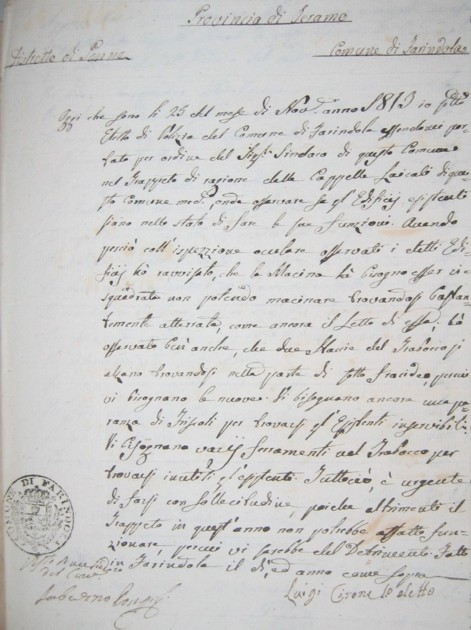 Provincia di Teramo
Distretto di Penne
Comune di Farindola
Oggi che sono li 25 del mese di Nov. anno 1813 io sotto
Eletto di Polizia del Comune di Farindola essendomi por-
tato per ordine del Sig. Sindaco di questo Comune
nel Trappeto di ragione delle Cappelle Laicali di que-
sto Comune med. onde osservare se gl' Edificj esistenti
siano nello stato di fare le sue funzioni. Avendo
perciò coll' ispezione oculare osservati i detti Edi-
ficj hò ravvisato, che la Macina hà bisogno esser ri-
squadrata non potendo macinare trovandosi bastan-
temente atterrata, come ancora il Letto di essa; hò
osservato ben' anche, che due del Trabocco
trovandosi nella parte di sotto fracidee, perciò
vi bisognano le nuove. Vi bisognano ancora una pa-
ranza di Fiscoli per trovarsi gl' esistenti inservibili.
Vi bisognano varij ferramenti nel Trabocco per
trovarsi inutili gl' esistenti. Tuttociò, è urgente
di farsi con sollecitudine, poiche altrimenti il
Trappeto in quest' anno non potrebbe affatto fun-
zionare, perciò vi sarebbe del Detrimento. Fatto
in Farindola il dì, ed anno come sopra
Luigi Cirone Eletto
COMUNE DI FARINDOLA